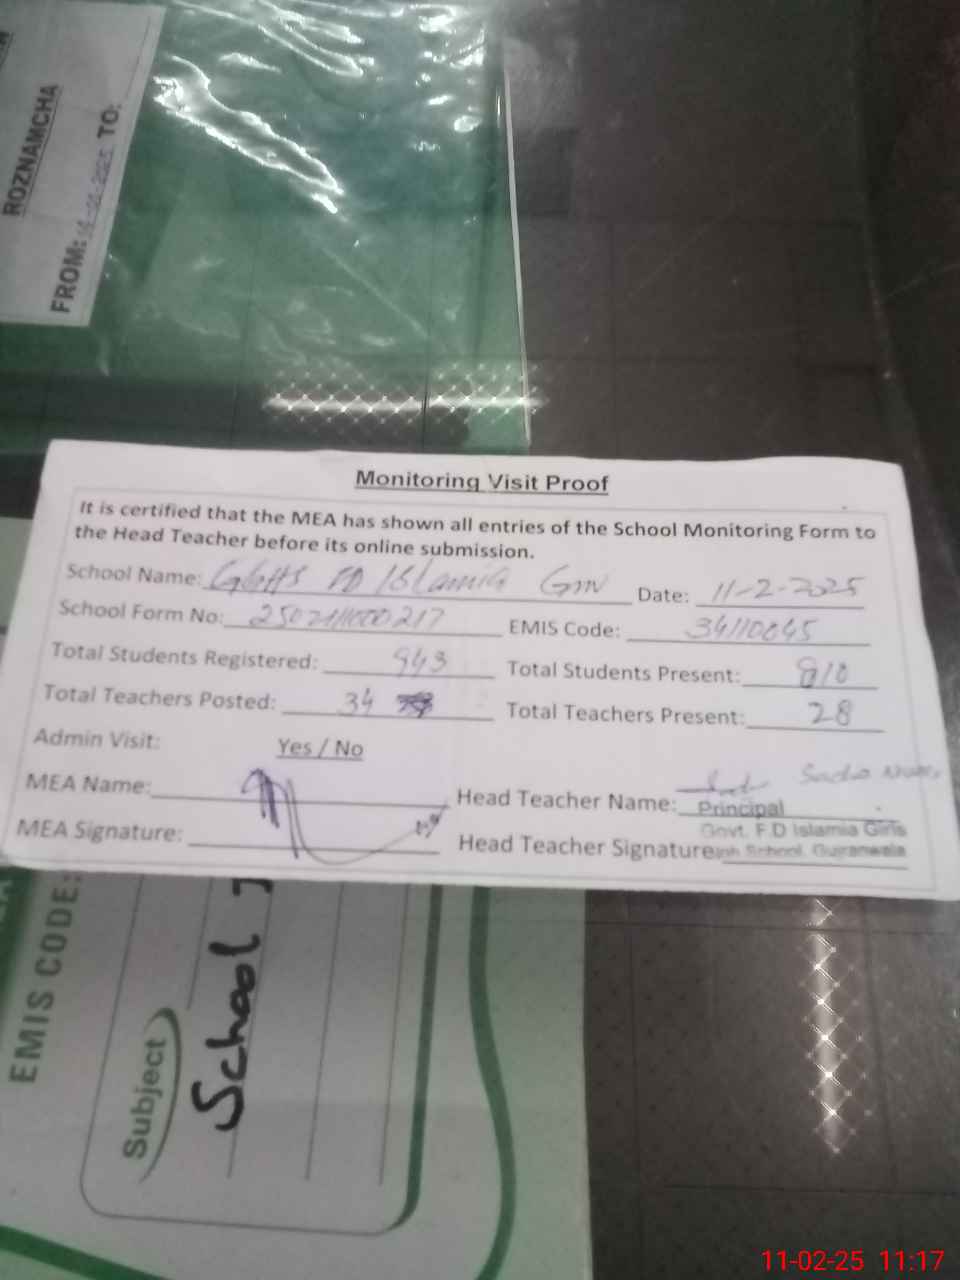 ROZNAMCHA
FROM: -2025 TO:
Monitoring Visit Proof
It is certified that the MEA has shown all entries of the School Monitoring Form to
the Head Teacher before its online submission.
School Name: GGHS FD Islamia GRW Date: 11-2-2025
School Form No: EMIS Code: 34110045
Total Students Registered: 943 Total Students Present: 810
Total Teachers Posted: 34 Total Teachers Present: 28
Admin Visit: Yes / No
MEA Name: Head Teacher Name:
Principal
MEA Signature: Head Teacher Signature
Govt. F.D Islamia Girls
High School, Gujranwala
EMIS CODE:
Subject
School
11-02-25 11:17